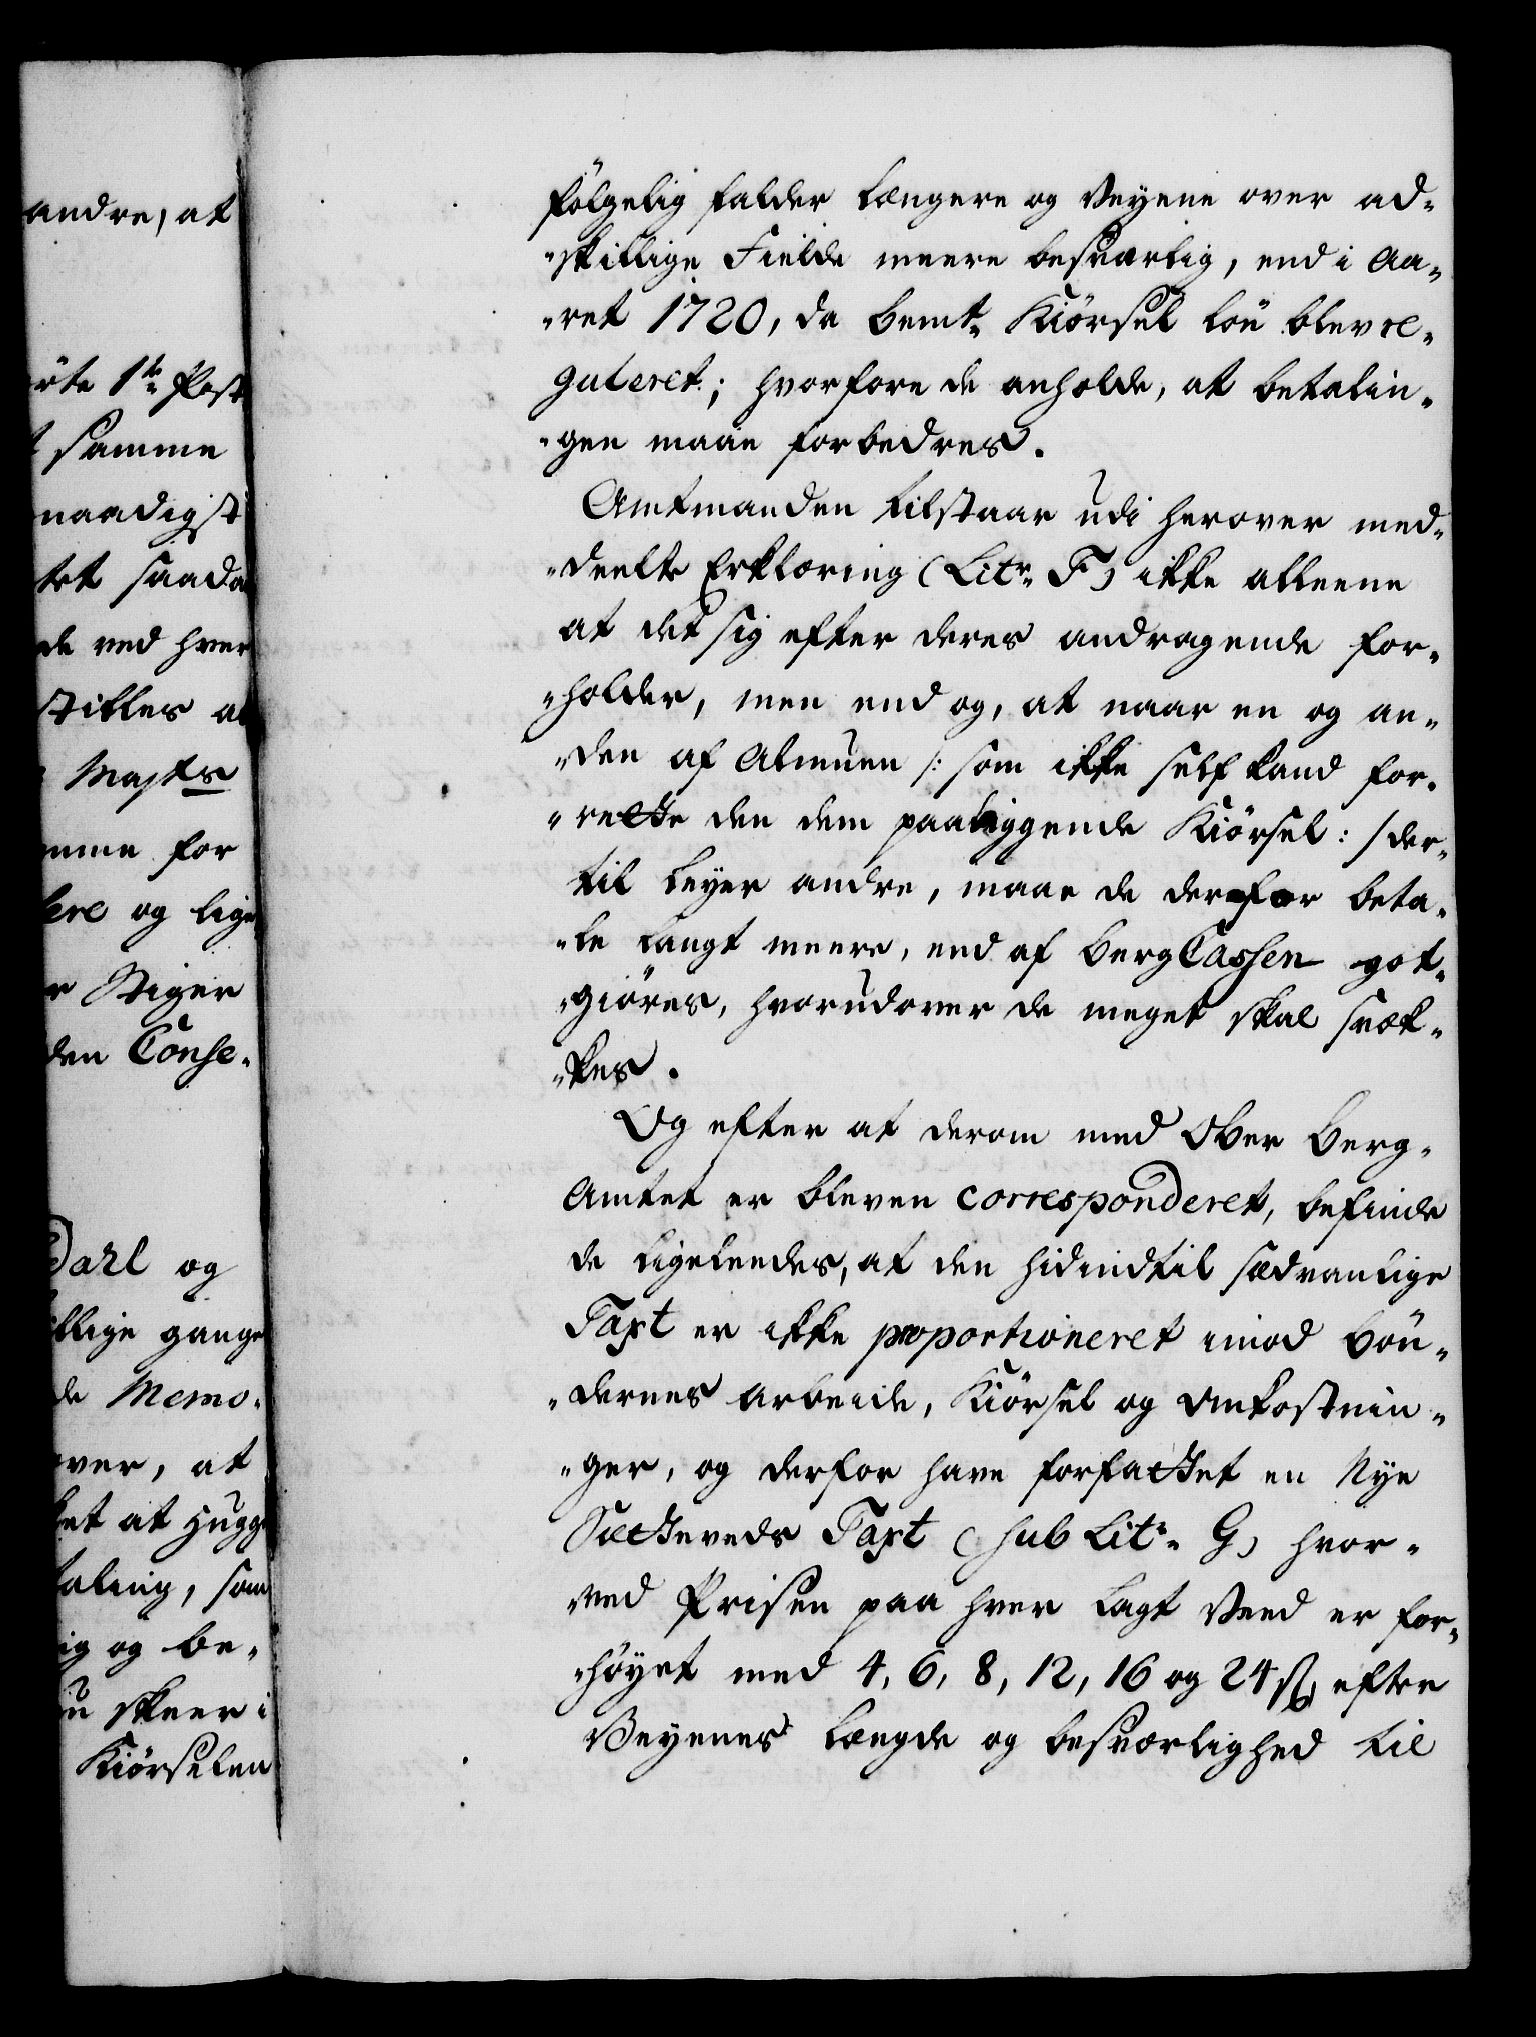 andre, at
1te Post
samme
naadigst
tet saada
de ved hver
stilles al
Maÿts
mme for
lere og lige
r Stiger
den Conse-
Dahl og
llige gange
de Memo-
over, at
ket at Hugge
taling, som
ig og be-
nu skeer i
Kiörselen
fölgelig falder længere og Veyene over ad-
-skillige Fielde meere besværlig, end i Aa-
-ret 1720, da bemte Kiörsel lön blev re-
guleret; hvorfore de anholde, at betalin-
-gen maae forbedres.
Amtmanden tilstaar udi herover med-
-deelte Erklæring (Litr. F) ikke alleene
at det sig efter deres andragende for-
-holder, men end og, at naar en og an-
-den af Almuen /: som ikke self kand for-
-rette den dem paaliggende Kiörsel: / der-
til leyer andre, maae de derfor beta-
-le langt meere, end af Berg Cassen got-
-giöres, hvorudover de meget skal svæk-
-kes.
Og efter at derom med Ober Berg-
Amtet er bleven corresponderet, befinde
de ligeleedes, at den hidindtil sædvanlige
Taxt er ikke proportioneret imod Bön-
-dernes arbeide, Kiörsel og Omkostnin-
-ger, og derfor have forfattet en Nye
Sætteveds Taxt (sub Litr. G) hvor-
-ved Prisen paa hver Lagt Veed er for-
-höyet med 4, 6, 8, 12, 16 og 24 ß efter
Veyenes Længde og besværlighed til